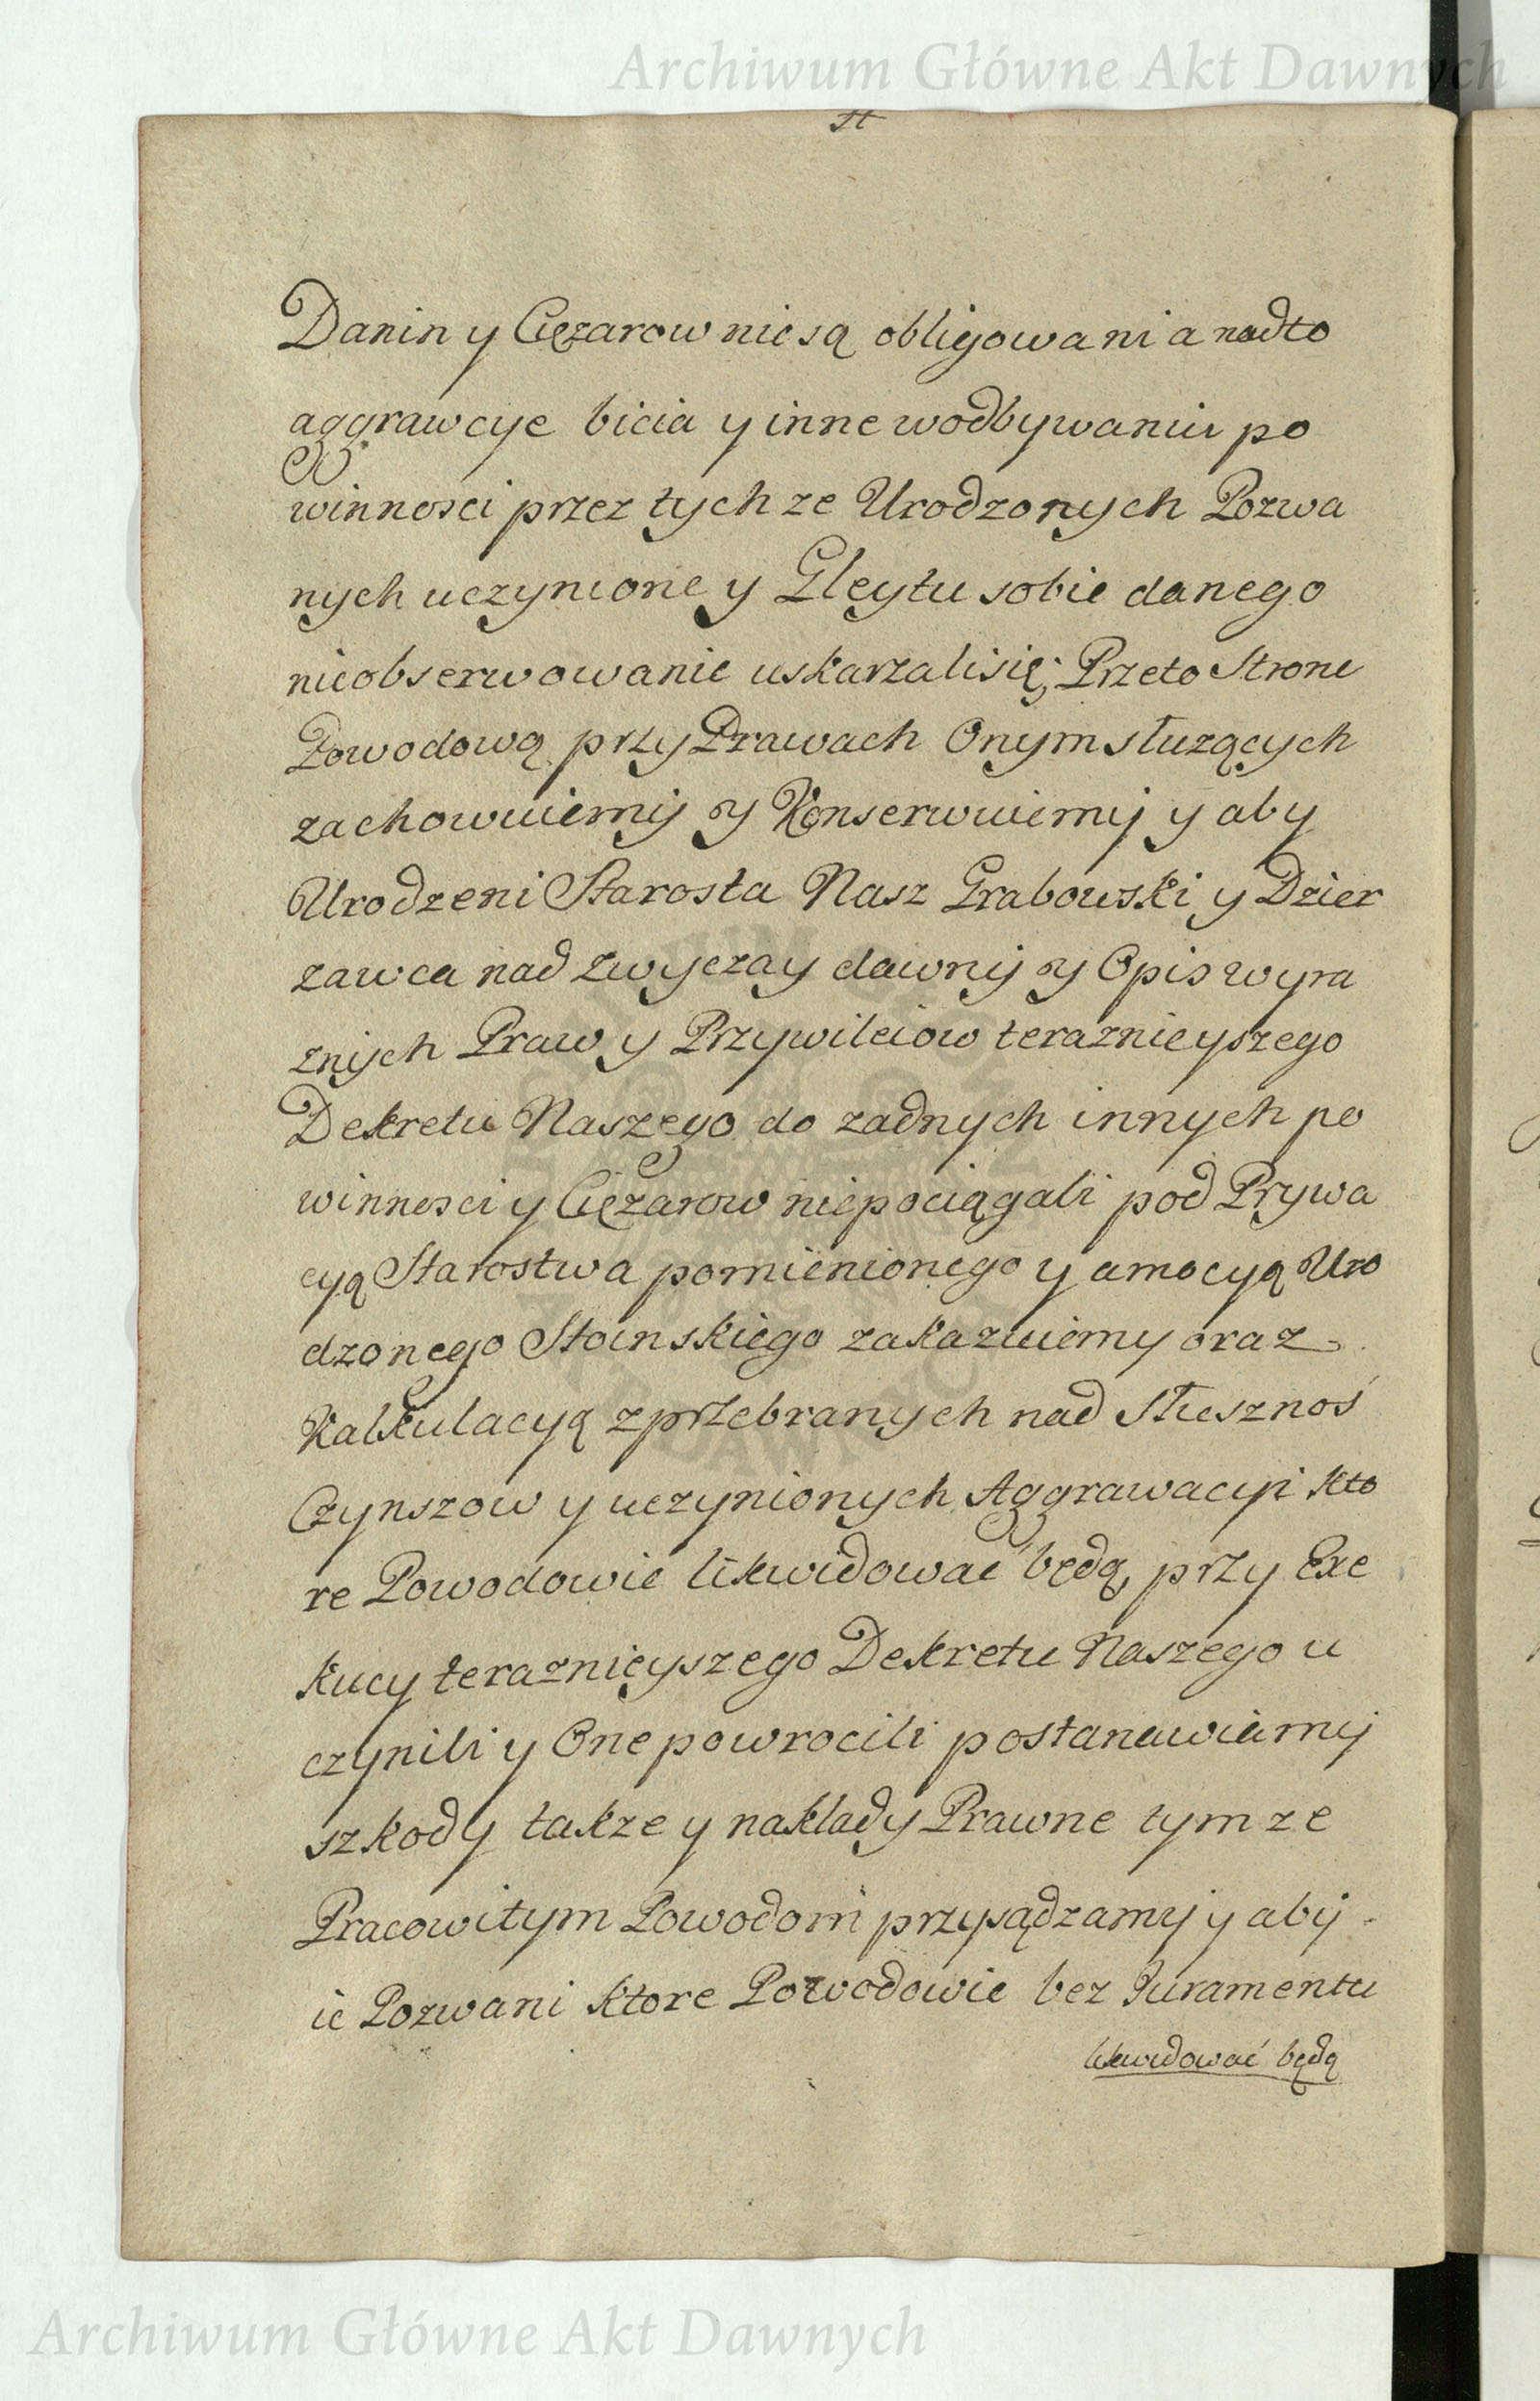 Archiwum Główne Akt Dawnych
Danin y Cięzarow nie są obligowani a nadto
aggrawcye bicia y inne w odbywaniu po
winnosci przez tych ze Urodzonych Pozwa
nych uczynione y Gleytu sobie danego
nieobserwowanie uskarzali się; Przeto Strone
Powodową przy Prawach Onym służących
zachowuiemy y Konserwuiemy y aby
Urodzeni Starosta Nasz Grabowski y Dzier
zawca nad zwyczay dawny y Opis wyra
znych Praw y Przywileiow teraznieyszego
Dekretu Naszego do zadnych innych po
winnosci y Cięzarow niepociągali pod Prywa
cyą Starostwa pomienionego y amocyą Uro
dzonego Stoinskiego zakazuiemy oraz
Kalkulacyą z przebranych nad Słusznos
Czynszow y uczynionych Aggrawacyi kto
re Powodowie likwidować będą, przy Exe
kucy teraznieyszego Dekretu Naszego u
czynili y One powrocili postanawiamy
szkody takze y nakłady Prawne tym ze
Pracowitym Powodom przysądzamy y aby
ie Pozwani ktore Powodowie bez Juramentu
likwidować będą
Archiwum Główne Akt Dawnych